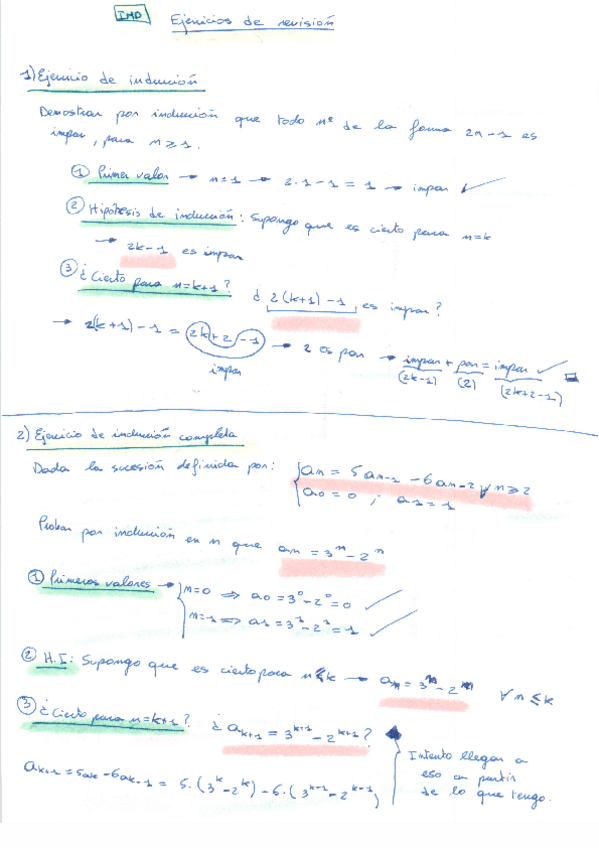 IMD Ejercicios de revisión
1) Ejercicio de inducción
Demostrar por inducción que todo nº de la forma 2n-1 es
impar, para n ≥ 1.
① Primer valor → n=1 → 2·1-1 = 1 → impar ✓
② Hipótesis de inducción: Supongo que es cierto para n=k
→ 2k-1 es impar
③ ¿Cierto para n=k+1? ¿ 2(k+1)-1 es impar?
→ 2(k+1)-1 = 2k+2-1 → 2 es par → impar + par = impar ✓
impar (2k-1) (2) (2k+2-1)
2) Ejercicio de inducción completa
Dada la sucesión definida por: an = 5an-1 - 6an-2 ∀n≥2
a0 = 0 ; a1 = 1
Probar por inducción en n que an = 3^n - 2^n
① Primeros valores → n=0 ⇒ a0 = 3^0 - 2^0 = 0 ✓
n=1 ⇒ a1 = 3^1 - 2^1 = 1 ✓
② H.I: Supongo que es cierto para n ≤ k → an = 3^n - 2^n ∀n ≤ k
③ ¿Cierto para n=k+1? ¿ ak+1 = 3^k+1 - 2^k+1?
Intento llegar a
eso a partir
de lo que tengo.
ak+1 = 5ak - 6ak-1 = 5·(3^k - 2^k) - 6·(3^k-1 - 2^k-1)